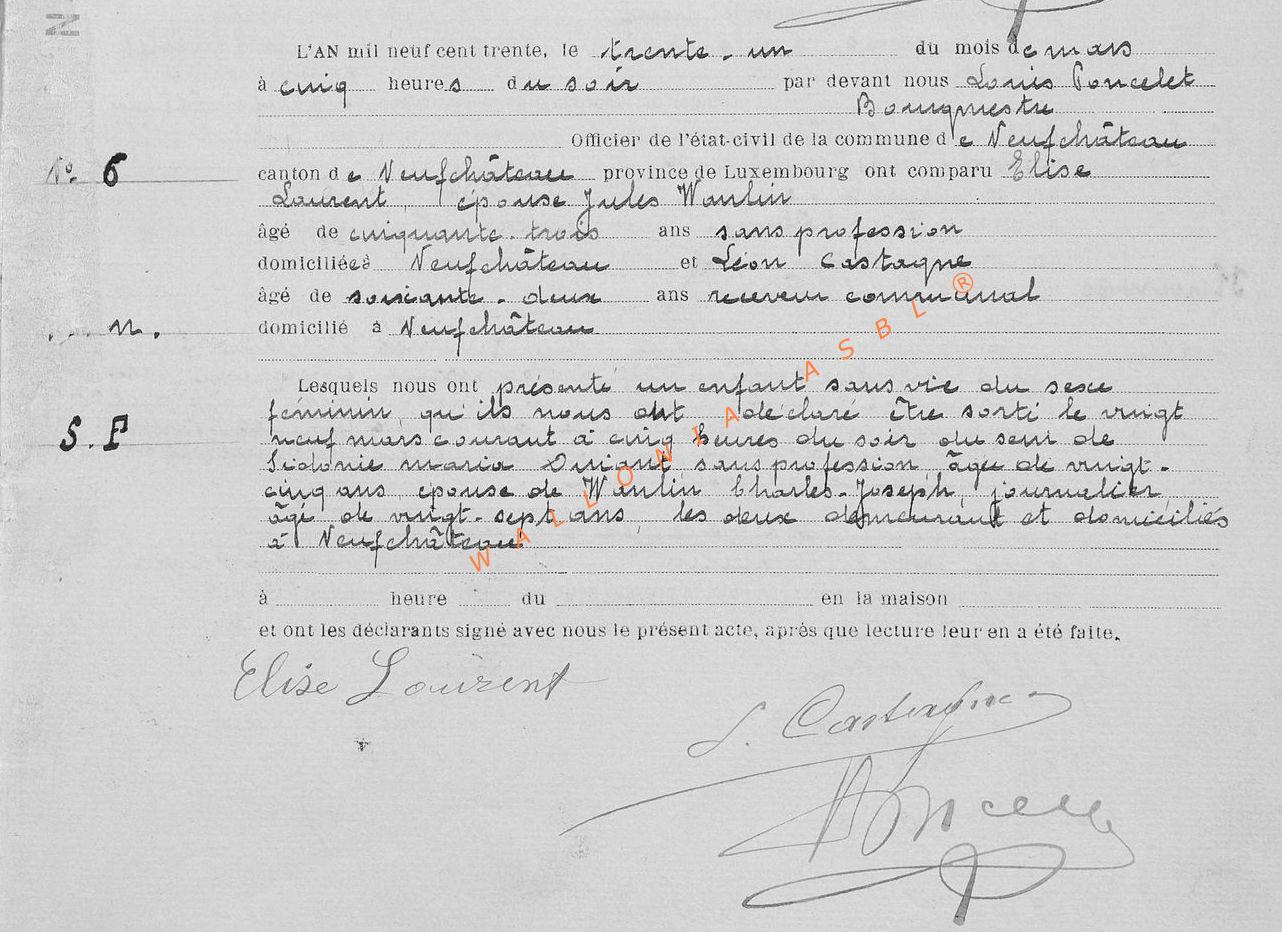 L'AN mil neuf cent trente, le trente-un du mois de mars
à cinq heures du soir par devant nous Louis Poncelet
Bourgmestre
Officier de l'état-civil de la commune de Neufchâteau
N° 6
canton de Neufchâteau province de Luxembourg ont comparu Elise
Laurent, épouse Jules Waulin
âgé de cinquante-trois ans sans profession
domiciliée à Neufchâteau et Léon Castagne
âgé de soixante-deux ans receveur communal
n.
domicilié à Neufchâteau
Lesquels nous ont présenté un enfant sans vie du sexe
féminin qu'ils nous ont déclaré être sorti le vingt
S. F
neuf mars courant à cinq heures du soir du sein de
Sidonie Maria sans profession âgée de vingt-
cinq ans épouse de Waulin Charles-Joseph, journalier
âgé de vingt-sept ans, les deux demeurant et domiciliés
à Neufchâteau.
WALLONIA ASBL®
à heure du en la maison
et ont les déclarants signé avec nous le présent acte, après que lecture leur en a été faite.
Elise Laurent
L. Castagne
Poncelet